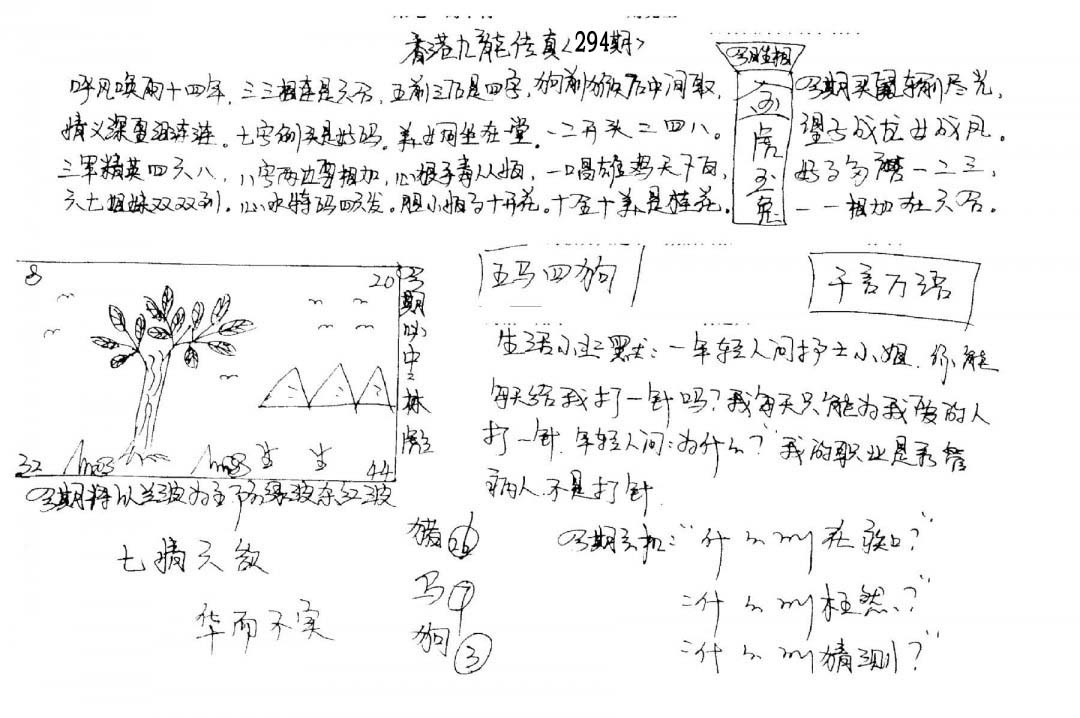 香港九龍传真<294期>
呼风唤雨十四年,三三相连是六合,五前三后是四字,狗前猴后中间取,
七字例头是好码。美女同坐在堂。一二开头二四八。
三军精英四六八,八字两边要相加,心狠手毒从恒,一唱雄鸡天下白,
六七姐妹双双到。心水特码四发。胆小怕事十开花。十全十美是桂花。
今期生相
虎
玉
兔
今期买
望子成龙女成凤。
好事多磨一二三,
一一相加在六合。
8
20
32
44
今期必中:林彪
五马四狗
千言万语
生活小幽默:一年轻人问护士小姐,你能
每天给我打一针吗?我每天只能为我爱的人
打一针,年轻人问:为什么?"我的职业是看管
病人,不是打针
今期将以兰波为主防绿波杂红波
七情六欲
华而不实
猪 26
马 7
狗 3
今期玄机:"什么叫花?"
:什么叫枉然?"
:什么叫猜测?"